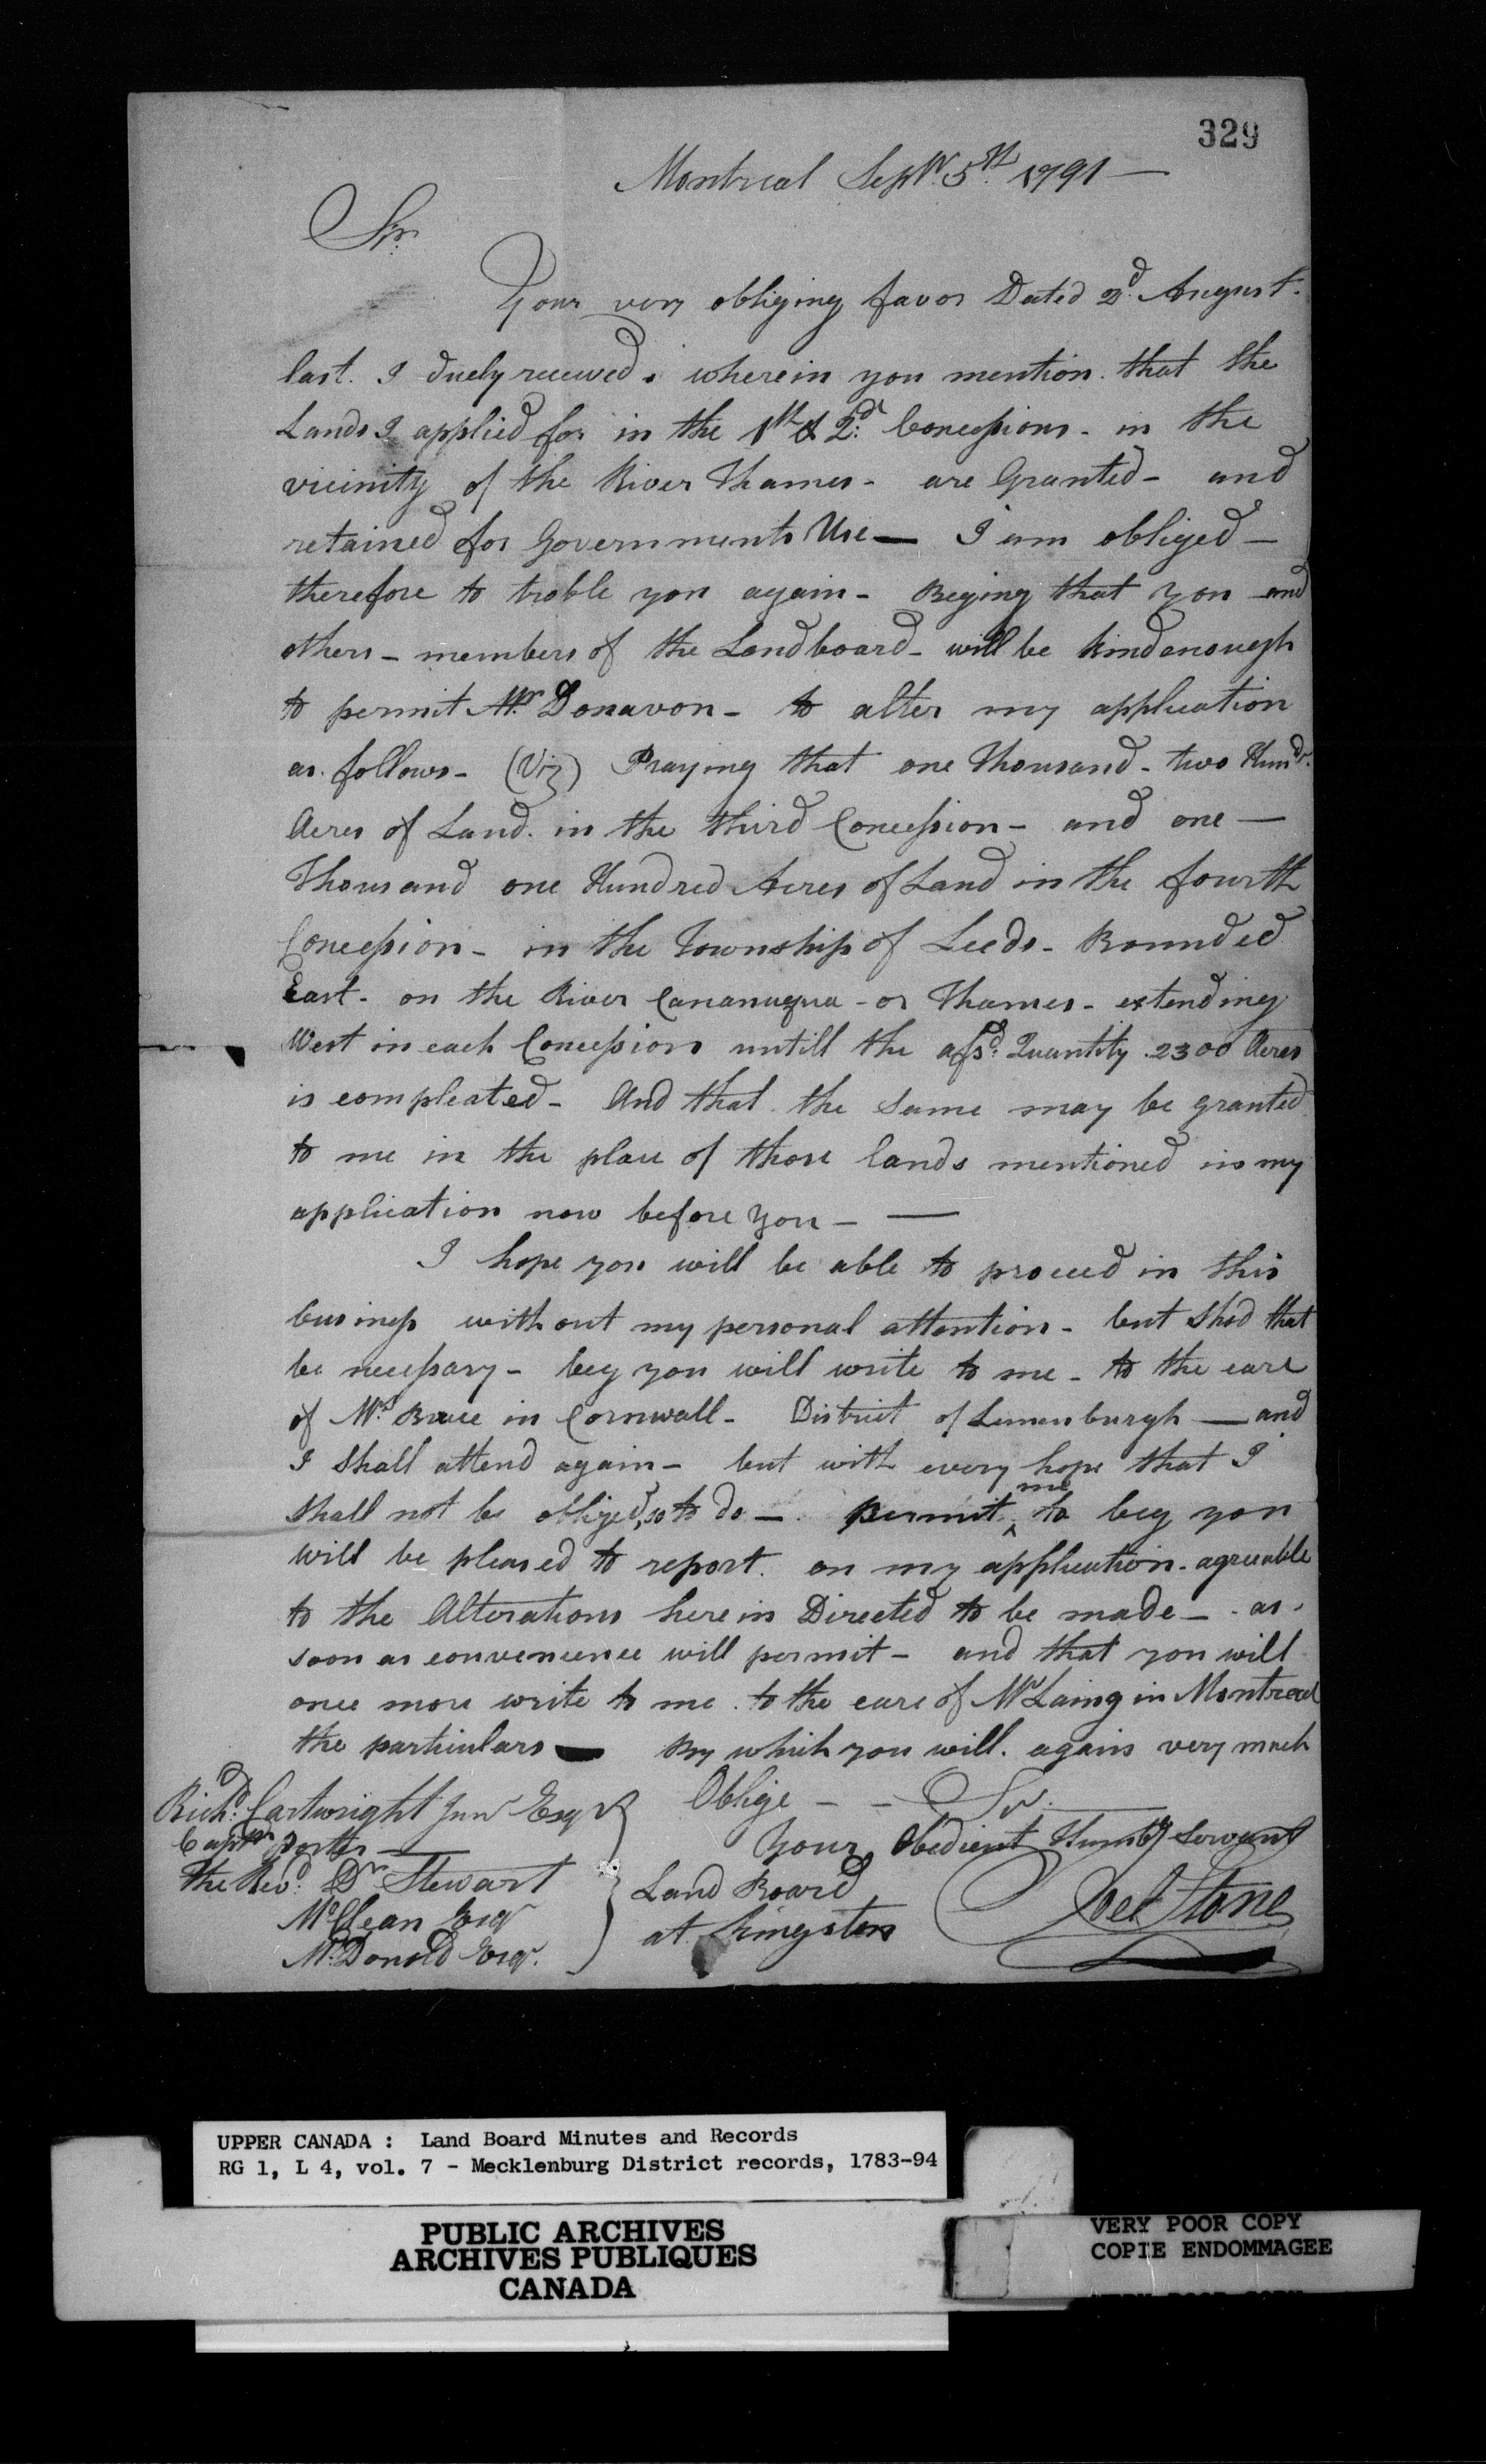 329
Montreal Septr. 5th. 1791 —
Sir.
Your very obliging favor Dated 2d. August.
last. I duely received. wherein you mention. that the
Lands I applied for in the 1st & 2d. Concessions - in the
vicinity of the River Thames - are Granted - and
retained for Governments Use — I am obliged —
therefore to troble you again - Beging that you and
others - members of the Landboard - will be kindenough
to permit Mr. Donavon - to alter my application
as follows - (Viz) Praying that one Thousand - two Hundr.
Acres of Land. in the third Concession - and one —
Thousand one Hundred Acres of Land in the fourth
Concession - in the Township of Leeds - Bounded
East - on the River Cananuqua - or Thames - extending
West in each Concession untill the afsd. Quantity. 2300 Acres
is compleated - And that the same may be granted
to me in the place of those lands mentioned in my
application now before you - —
I hope you will be able to proceed in this
business without my personal attention - but Shod that
be necessary - beg you will write to me - to the care
of Mr. Bruce in Cornwall - District of Lunenburgh — and
I Shall attend again - but with every hope that I
Shall not be obliged, so to do — permit me to beg you
will be pleased to report. on my application - agreeable
to the Alterations herein Directed to be made - as
soon as convenience will permit - and that you will
once more write to me. to the care of Mr Laing in Montreal
the particulars — By which you will. again very much
Oblige - - Sir.
Your Obedient Humble Servant
Joel Stone
Richd. Cartwright Junr Esqr
Captn Porter —
The Revd. Dr Stewart
McClean Esqr
McDonold Esqr.
Land Board
at Kingston
UPPER CANADA : Land Board Minutes and Records
RG 1, L 4, vol. 7 - Mecklenburg District records, 1783-94
PUBLIC ARCHIVES
ARCHIVES PUBLIQUES
CANADA
VERY POOR COPY
COPIE ENDOMMAGEE